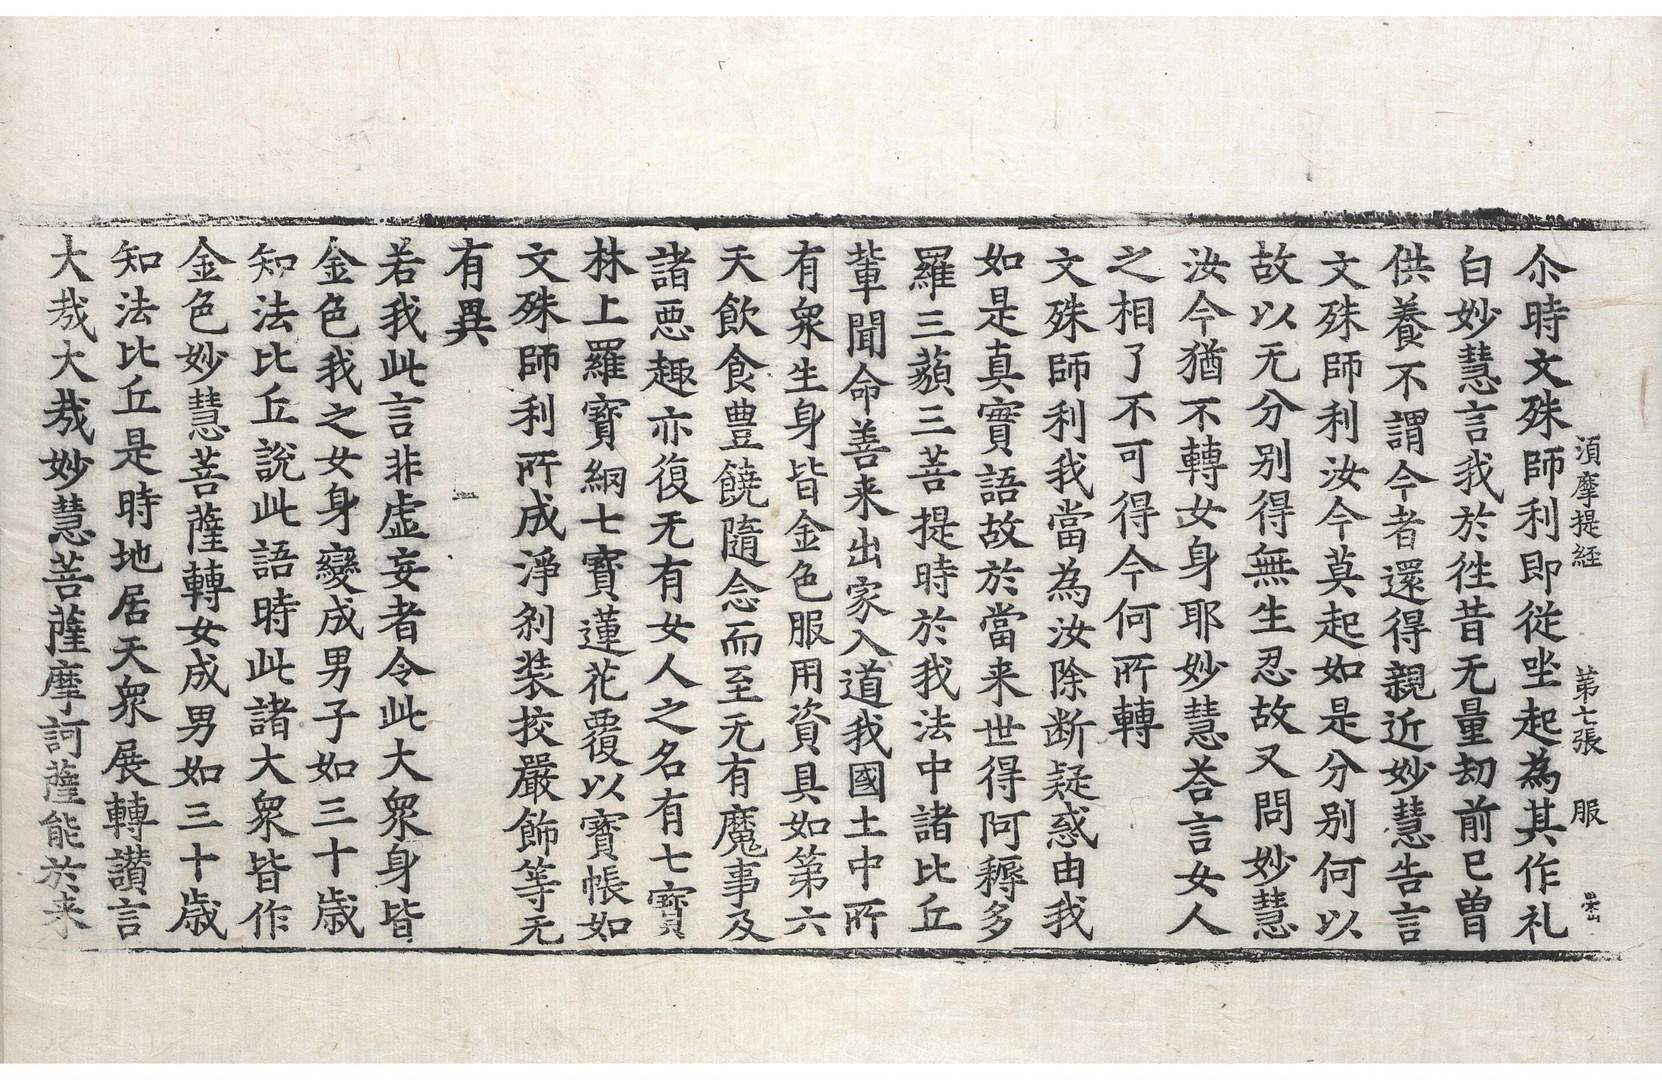 湏摩提経 第七張 服
尒時文殊師利即從坐起為其作礼
白妙慧言我於徃昔无量劫前已曾
供養不謂今者還得親近妙慧告言
文殊師利汝今莫起如是分別何以
故以无分別得無生忍故又問妙慧
汝今猶不轉女身耶妙慧荅言女人
之相了不可得今何所轉
文殊師利我當為汝除断疑惑由我
如是真實語故於當来世得阿耨多
羅三藐三菩提時於我法中諸比丘
輩聞命善来出家入道我國土中所
有衆生身皆金色服用資具如第六
天飲食豊饒隨念而至无有魔事及
諸悪趣亦復无有女人之名有七寶
林上羅寶網七寶蓮花覆以寶帳如
文殊師利所成淨刹装挍嚴飾等无
有異
若我此言非虚妄者令此大衆身皆
金色我之女身變成男子如三十歳
知法比丘說此語時此諸大衆皆作
金色妙慧菩薩轉女成男如三十歳
知法比丘是時地居天衆展轉讃言
大㢤大㢤妙慧菩薩摩訶薩能於来